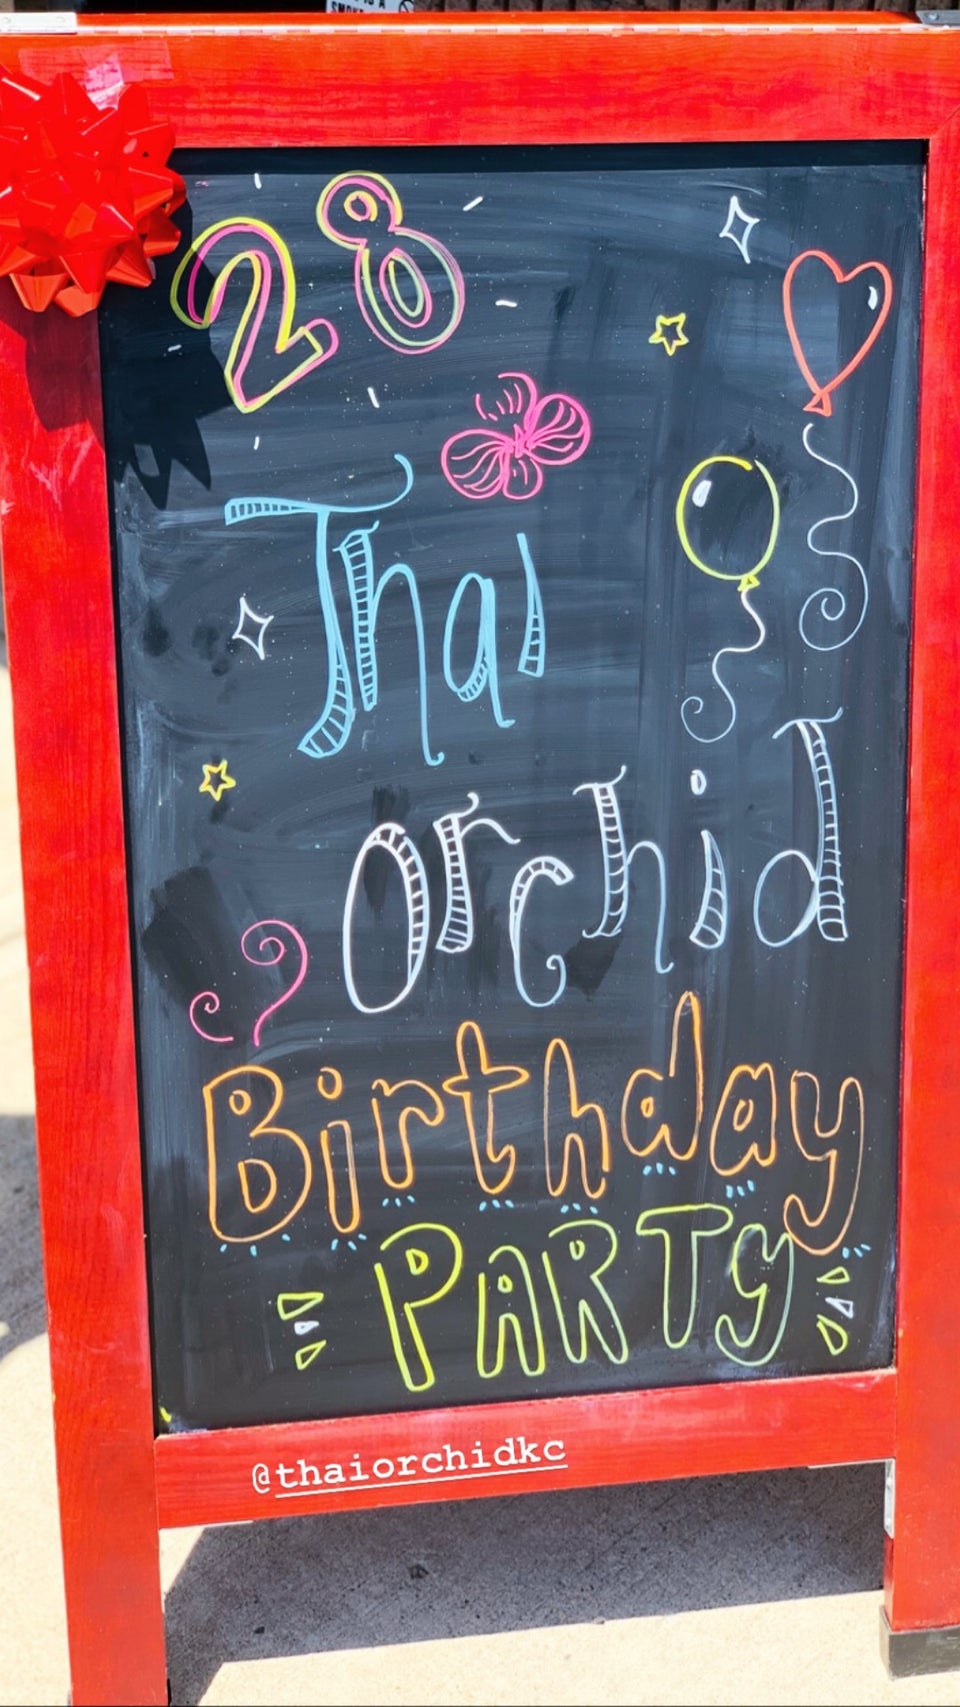 28
Thai
orchid
Birthday
PARTy
@thaiorchidkc